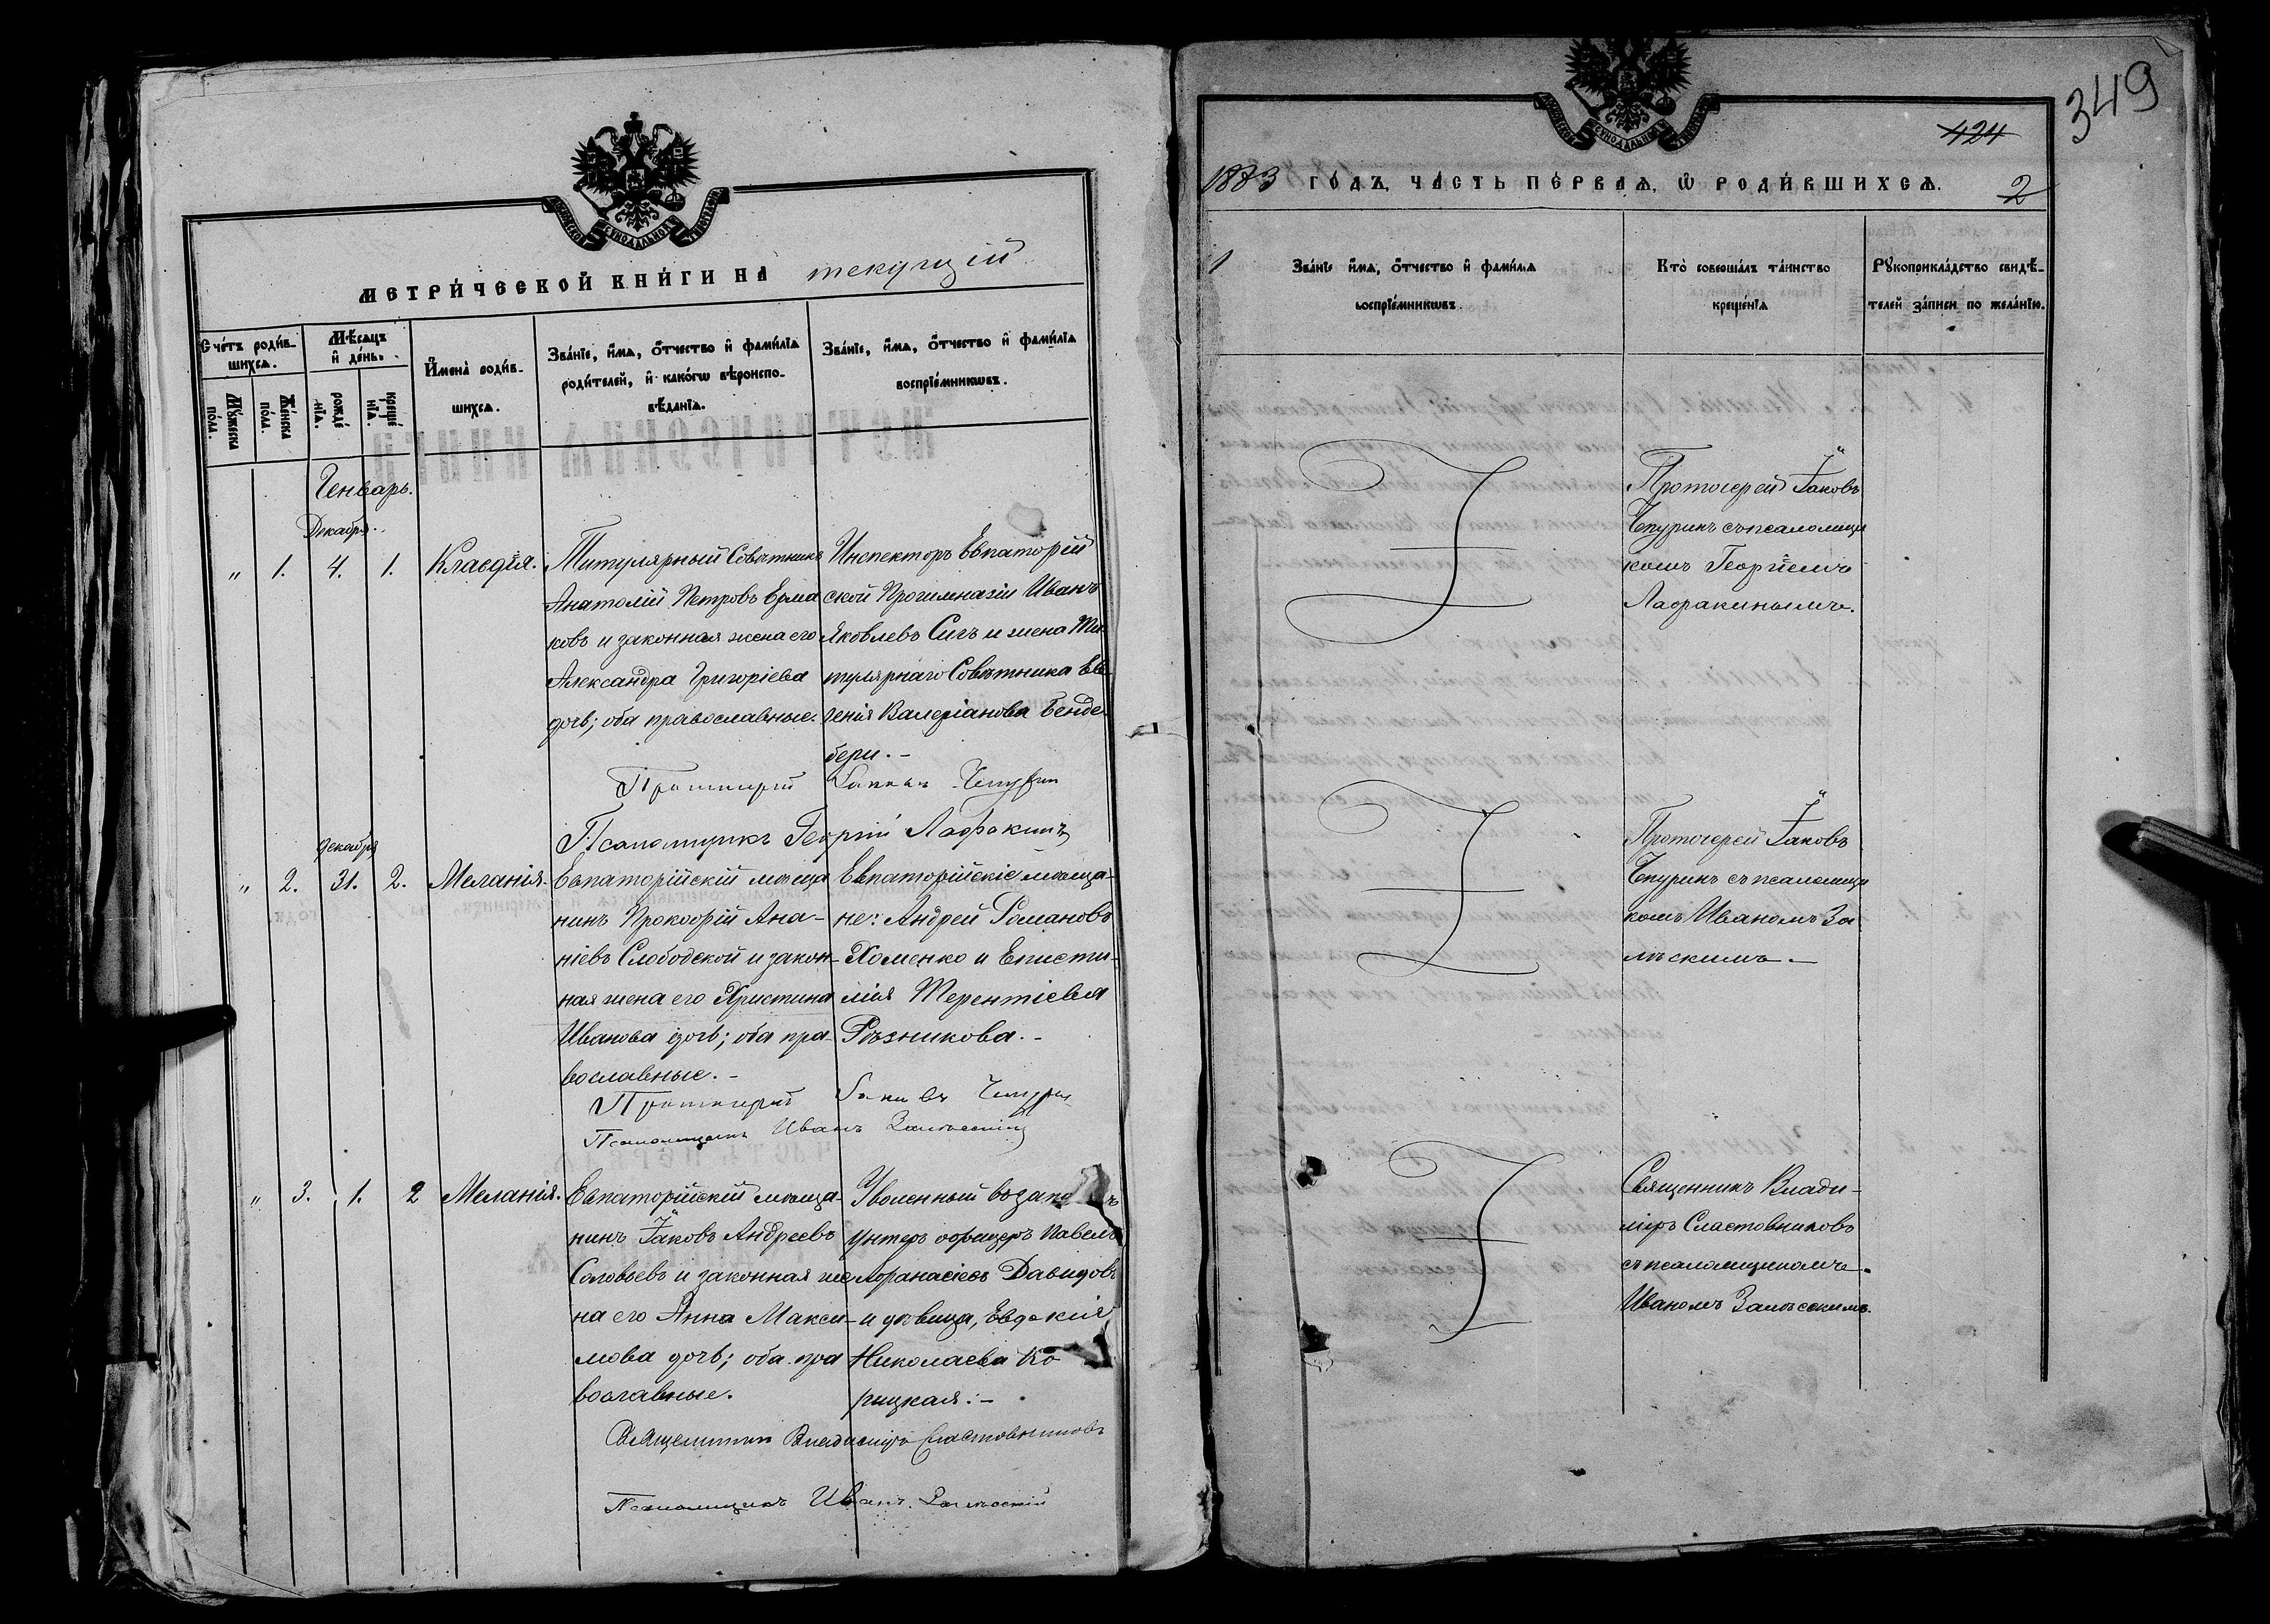 МЕТРИ́ЧЕСКОЙ КНИ́ГИ НА текущій
Сче́тъ роди́в-
шихсѧ.
Мꙋ́жеска по́ла.
Же́нска по́ла.
Мѣ́сѧцъ
и҆ де́нь.
рожде́нїѧ.
креще́нїѧ.
И҆мена̀ роди́в-
шихсѧ.
Зва́нїе, и҆́мѧ, ѻ҆́тчество и҆ фамилїѧ
роди́телей, и҆ како́гѡ вѣроиспо-
вѣ́данїѧ.
Зва́нїе, и҆́мѧ, ѻ҆́тчество и҆ фами́лїѧ
воспрїе́мникѡвъ.
Генварь.
Декабря.
„ 1. 4. 1. Клавдія.
Титулярный Совѣтникъ
Анатолій Петровъ Ерма
ковъ и законная жена его
Александра Григоріева
дочь; оба православные.
Инспекторъ Евпаторій
ской Прогимназіи Иванъ
Яковлевъ Сигъ и жена Ти
тулярнаго Совѣтника Ев
генія Валеріанова Бенде
бери.-
Протоіерей Іаковъ Чепурин
Псаломщикъ Георгій Лафакинъ
декабря
„ 2. 31. 2. Меланія.
Евпаторійскій мѣща
нинъ Прокофій Ана-
ніевъ Слободской и закон-
ная жена его Христина
Иванова дочь; оба пра-
вославные.-
Евпаторійскіе мѣща-
не: Андрей Романовъ
Хоменко и Еписти-
мія Терентіева
Рѣзникова.-
Протоіерей Іаковъ Чепурин
Псаломщикъ Иванъ Залѣсскій
„ 3. 1. 2 Меланія.
Евпаторійскій мѣща-
нинъ Іаковъ Андреевъ
Соловьевъ и законная же
на его Анна Макси-
мова дочь; оба пра
вославные.
Уволенный въ
унтеръ офицеръ Павелъ
Афанасіевъ Давидовъ
и дѣвица, Евдокія
Николаева Ко
рицкая:-
Священникъ Владиміръ Сластовниковъ
Псаломщикъ Иванъ Залѣсскій
349
424
1883 ГО́ДЪ, ЧА́СТЬ ПЕ́РВАѦ, Ѡ҆ РОДИ́ВШИХСѦ. 2
1
Зва́нїе и҆́мѧ, ѻ҆́тчество и҆ фами́лїѧ
воспрїе́мникѡвъ.
Кто̀ соверша́лъ та́инство
креще́нїѧ
Рꙋкоприкла́дство свидѣ́-
телей за́писи по жела́нїю.
Протоіерей Іаковъ
Чепуринъ съ псаломщи
комъ Георгіемъ
Лафакинымъ.
Протоіерей Іаковъ
Чепуринъ съ псаломщи
комъ Иваномъ За
лѣскимъ.-
Священникъ Влади-
міръ Сластовниковъ
съ псаломщикомъ
Иваномъ Залѣсскимъ.